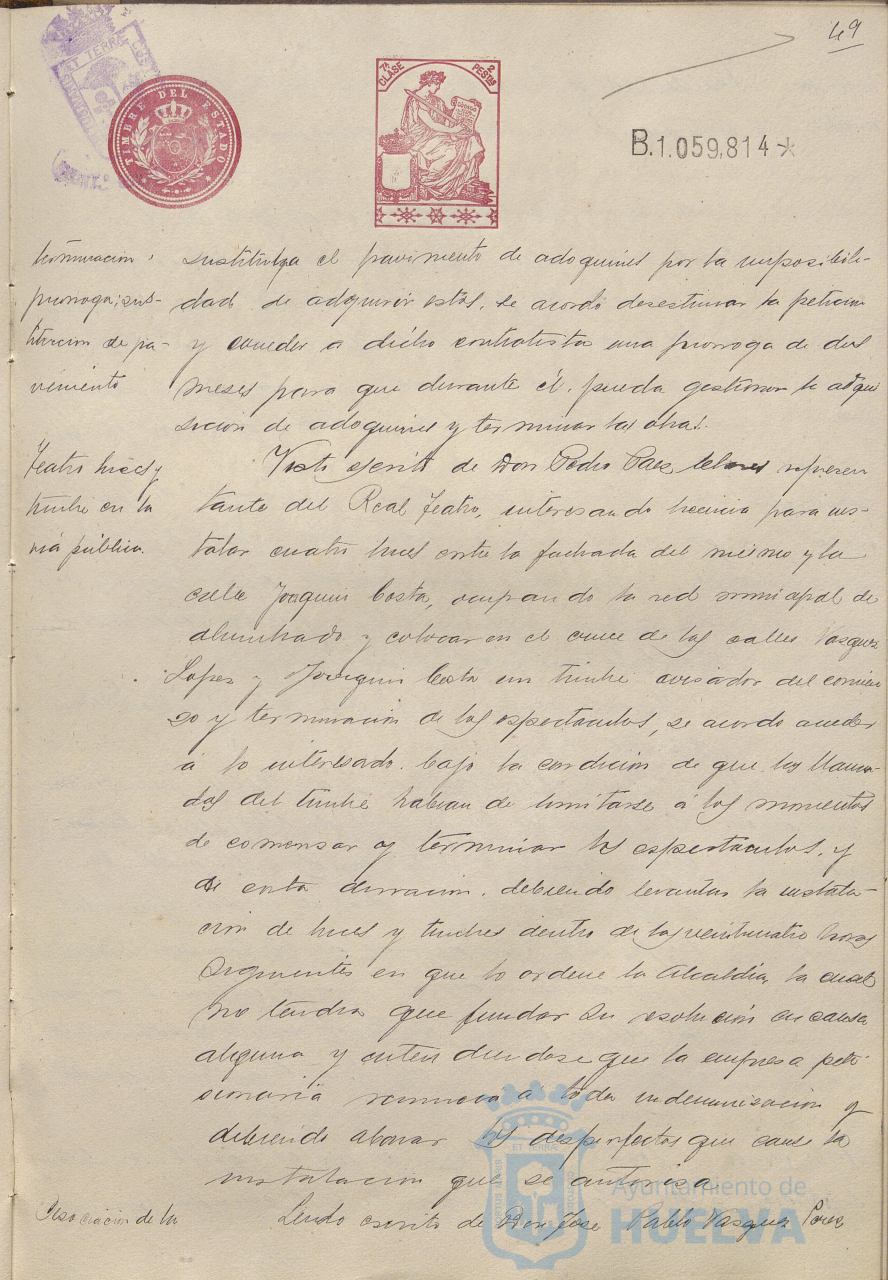 49
TIMBRE DEL ESTADO
7ª CLASE
2 PESTAS
B.1.059,814*
terminacion,
prorroga; sus-
titucion de pa-
vimento
sustituya el pavimento de adoquines por la imposibili-
dad de adquirir estos, se acordó desestimar la peticion
y conceder a dicho contratista una prorroga de dos
meses para que durante él, pueda gestionar la adqui
sicion de adoquines y terminar las obras.
Teatro luces y
timbre en la
via pública.
Visto escrito de Don Pedro Paez represen
tante del Real Teatro, interesando licencia para ins-
talar cuatro luces entre la fachada del mismo y la
calle Joaquin Costa, ocupando la red municipal de
alumbrado y colocar en el cruce de las calles Vazquez
Lopez y Joaquin Costa un timbre avisador del comien
zo y terminacion de los espectaculos, se acordó acceder
á lo interesado bajo la condicion de que las llama-
das del timbre habian de limitarse á los momentos
de comenzar y terminar los espectaculos, y
de corta duracion, debiendo levantar la instala-
cion de luces y timbres dentro de las veinticuatro horas
siguientes en que lo ordene la Alcaldia, la cual
no tendrá que fundar su resolución en causa
alguna y entendiendose que la empresa peti
cionaria renuncia á toda indemnizacion y
debiendo abonar los desperfectos que cause la
instalacion que se autoriza.
Asociacion de la
Leido escrito de Don José Pablo Vazquez Perez
Ayuntamiento de
HUELVA